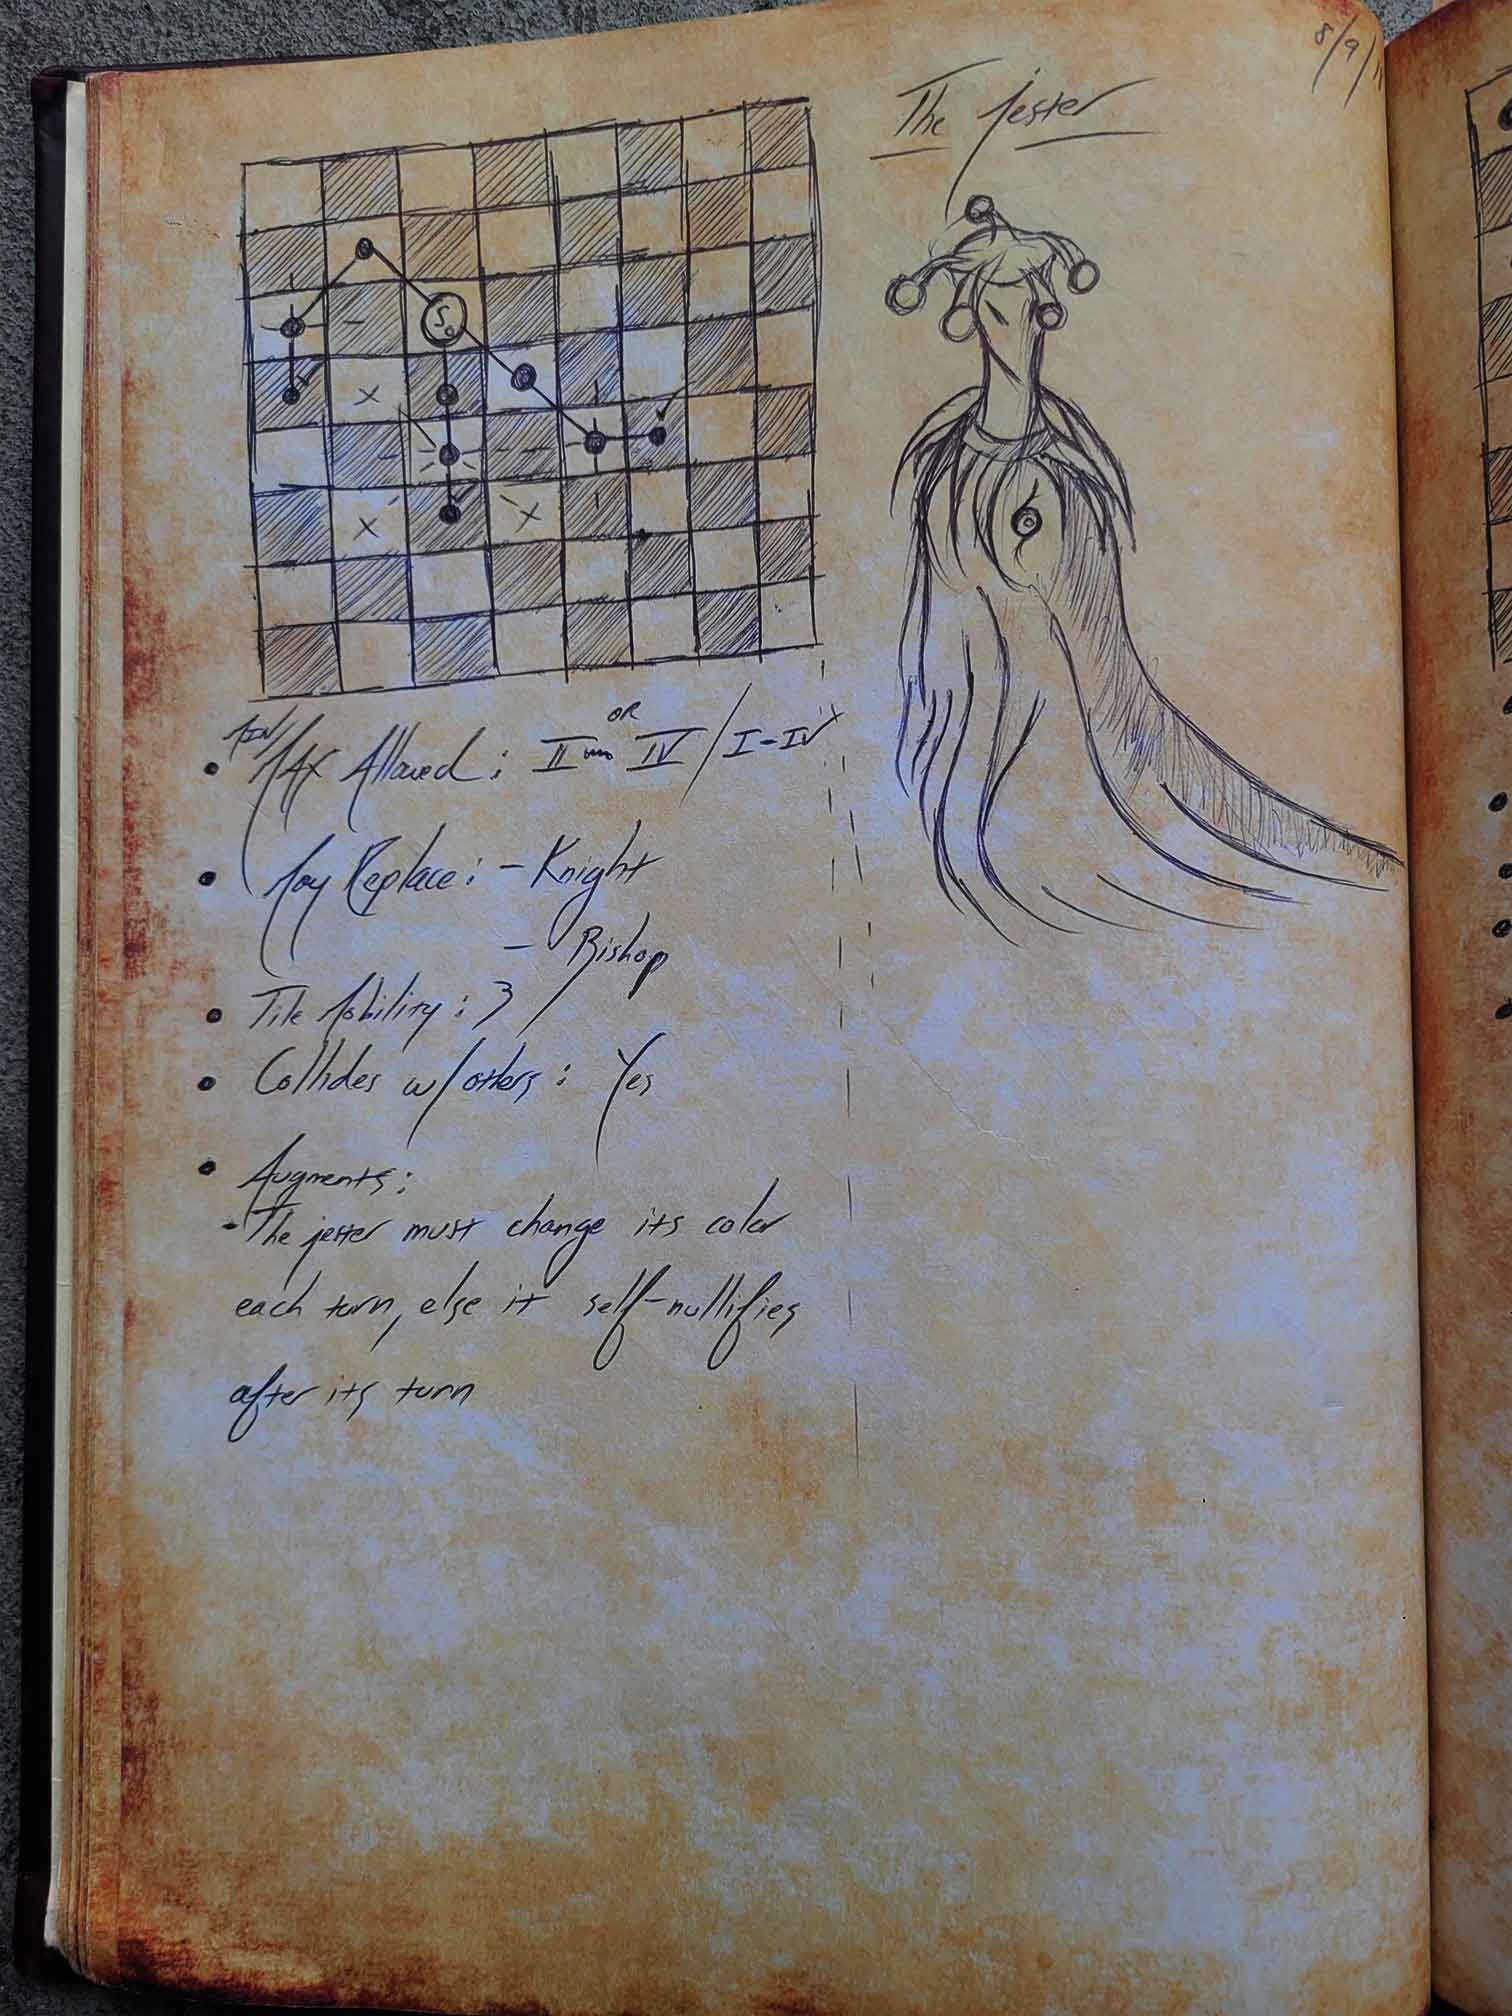 8/9/
The Jester
S
MIN/MAX Allowed : II OR IV / I-IV
May Replace : - Knight
- Bishop
Tile Mobility : 3
Collides w/ others : Yes
Augments :
- The jester must change its color
each turn, else it self-nullifies
after its turn